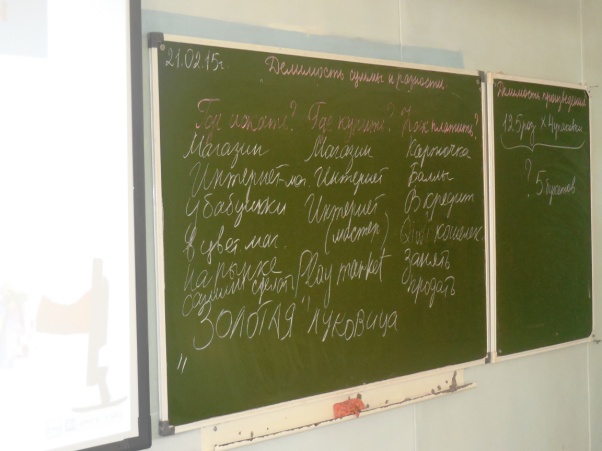 21.02.15г.
Делимость суммы и разности
Где искать? Где купить? Как платить?
Магазин Магазин Карточка
Интернет-маг. Интернет Баллы
У бабушки Интернет В кредит
в цвет. маг. (мастер) Qiwi кошелек
на рынке Play market Занять
самим сделать продать
"ЗОЛОТАЯ" луковица
Делимость произведения
125 роз × 4 упаковки
? 5 букетов